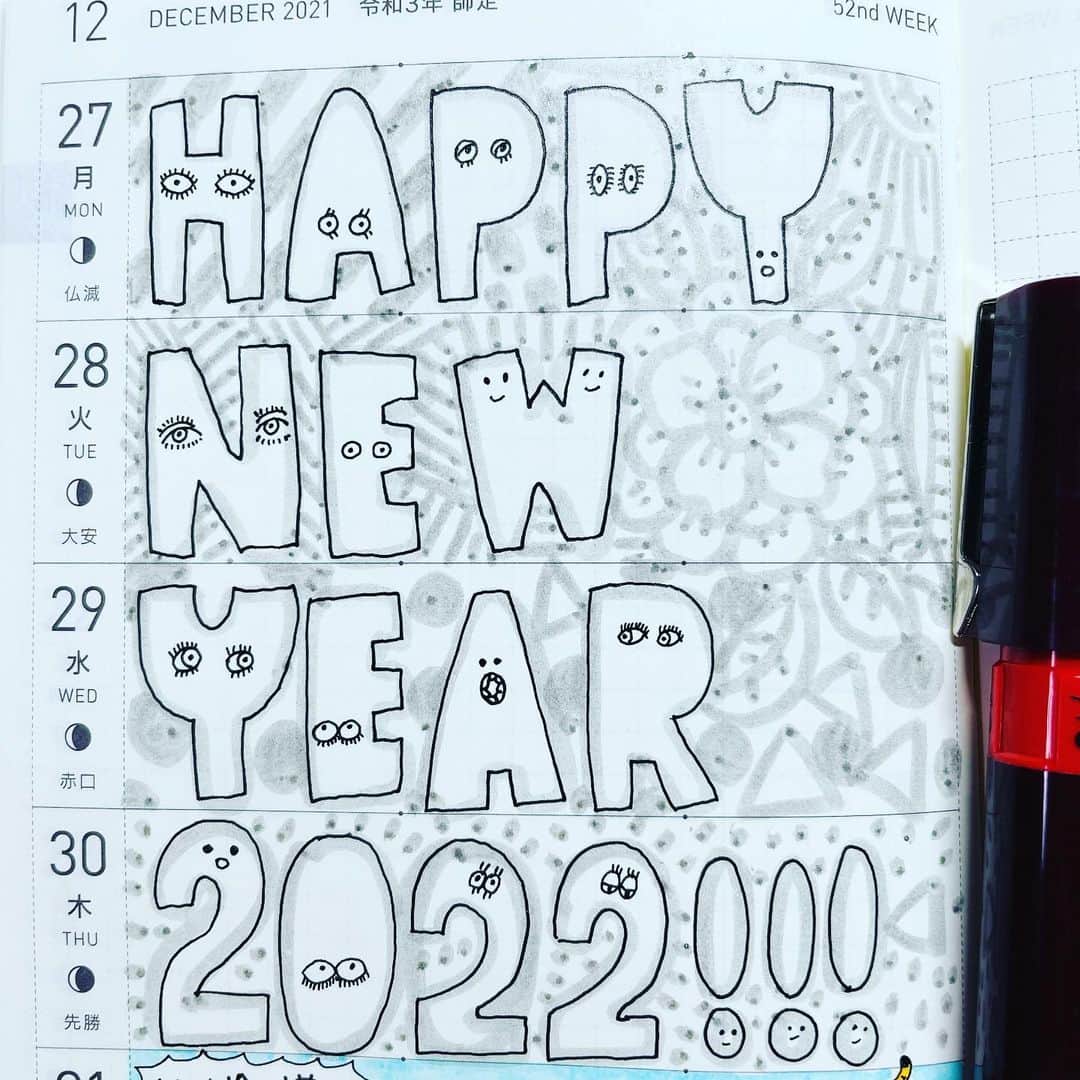 12 DECEMBER 2021 令和3年 師走 52nd WEEK
27
月
MON
仏滅
HAPPY
28
火
TUE
大安
NEW
29
水
WED
赤口
YEAR
30
木
THU
先勝
2022!!!